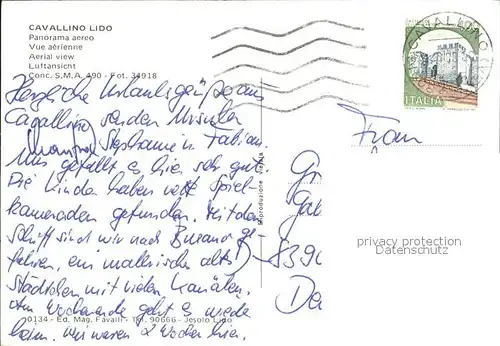 CAVALLINO LIDO
Panorama aereo
Vue aérienne
Aerial view
Luftansicht
Conc. S.M.A. 490 - Fot. 34918
CAVALLINO
ITALIA
Herzliche Urlaubsgrüße aus
Cavallino senden Ursula
Manfred Stephanie u. Fabian.
Uns gefällt es hier sehr gut.
Die Kinder haben nett Spiel-
kameraden gefunden. Mit dem
Schiff sind wir nach Burano ge-
fahren, ein malerisches altes
Städtchen mit vielen Kanälen.
Am Wochenende geht es wieder
heim. Wir waren 2 Wochen hier.
Riproduzione vietata
Frau
privacy protection
Datenschutz
D-8390
20134 - Ed. Mag. Favalli - Tel. 90666 - Jesolo Lido